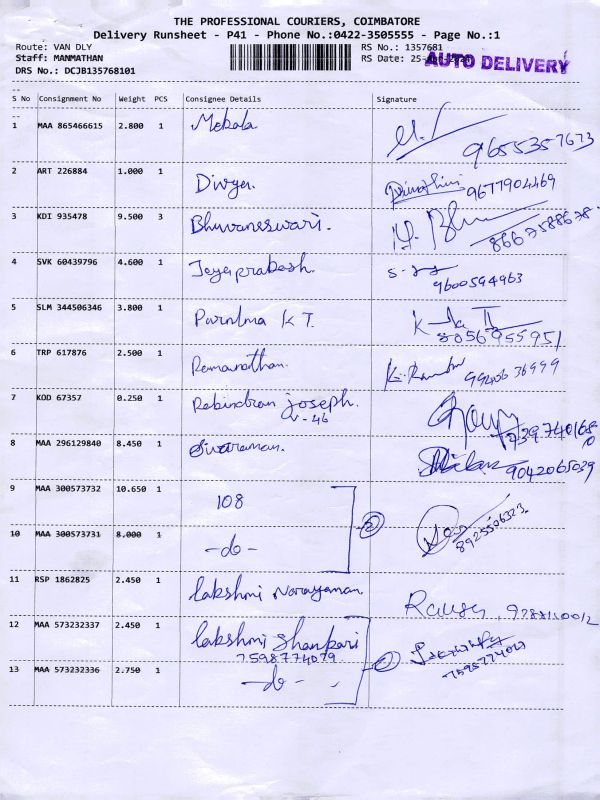 THE PROFESSIONAL COURIERS, COIMBATORE
Delivery Runsheet - P41 - Phone No.:0422-3505555 - Page No.:1
Route: VAN DLY RS No.: 1357681
Staff: MANMATHAN RS Date: 25- AUTO DELIVERY
DRS No.: DCJB135768101
S No Consignment No Weight PCS Consignee Details Signature
1 MAA 865466615 2.800 1 Mekala 9655357673
2 ART 226884 1.000 1 Divya. 9677904469
3 KDI 935478 9.500 3 Bhuvaneswari. 8667588678
4 SVK 60439796 4.600 1 Jayaprakash. 9600594963
5 SLM 344506346 3.800 1 Purnima K T. 8056955951
6 TRP 617876 2.500 1 Ramanathan.
7 KOD 67357 0.250 1 Rabindran joseph.
V-46
8 MAA 296129840 8.450 1 Sivaraman. 9042065029
9 MAA 300573732 10.650 1 108 2
10 MAA 300573731 8.000 1 -do- 8925506323
11 RSP 1862825 2.450 1 lakshmi Narayanan.
12 MAA 573232337 2.450 1 lakshmi Shankari
7598774079
13 MAA 573232336 2.750 1 -do-